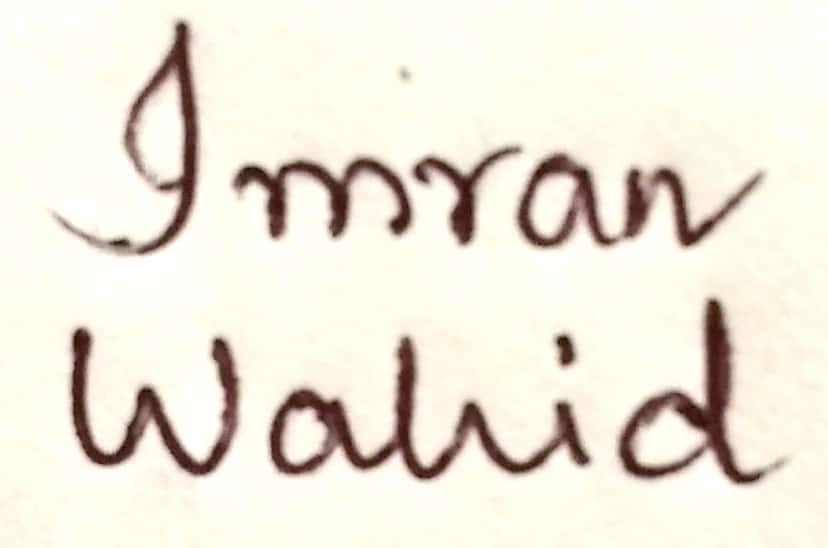 Imran
Wahid